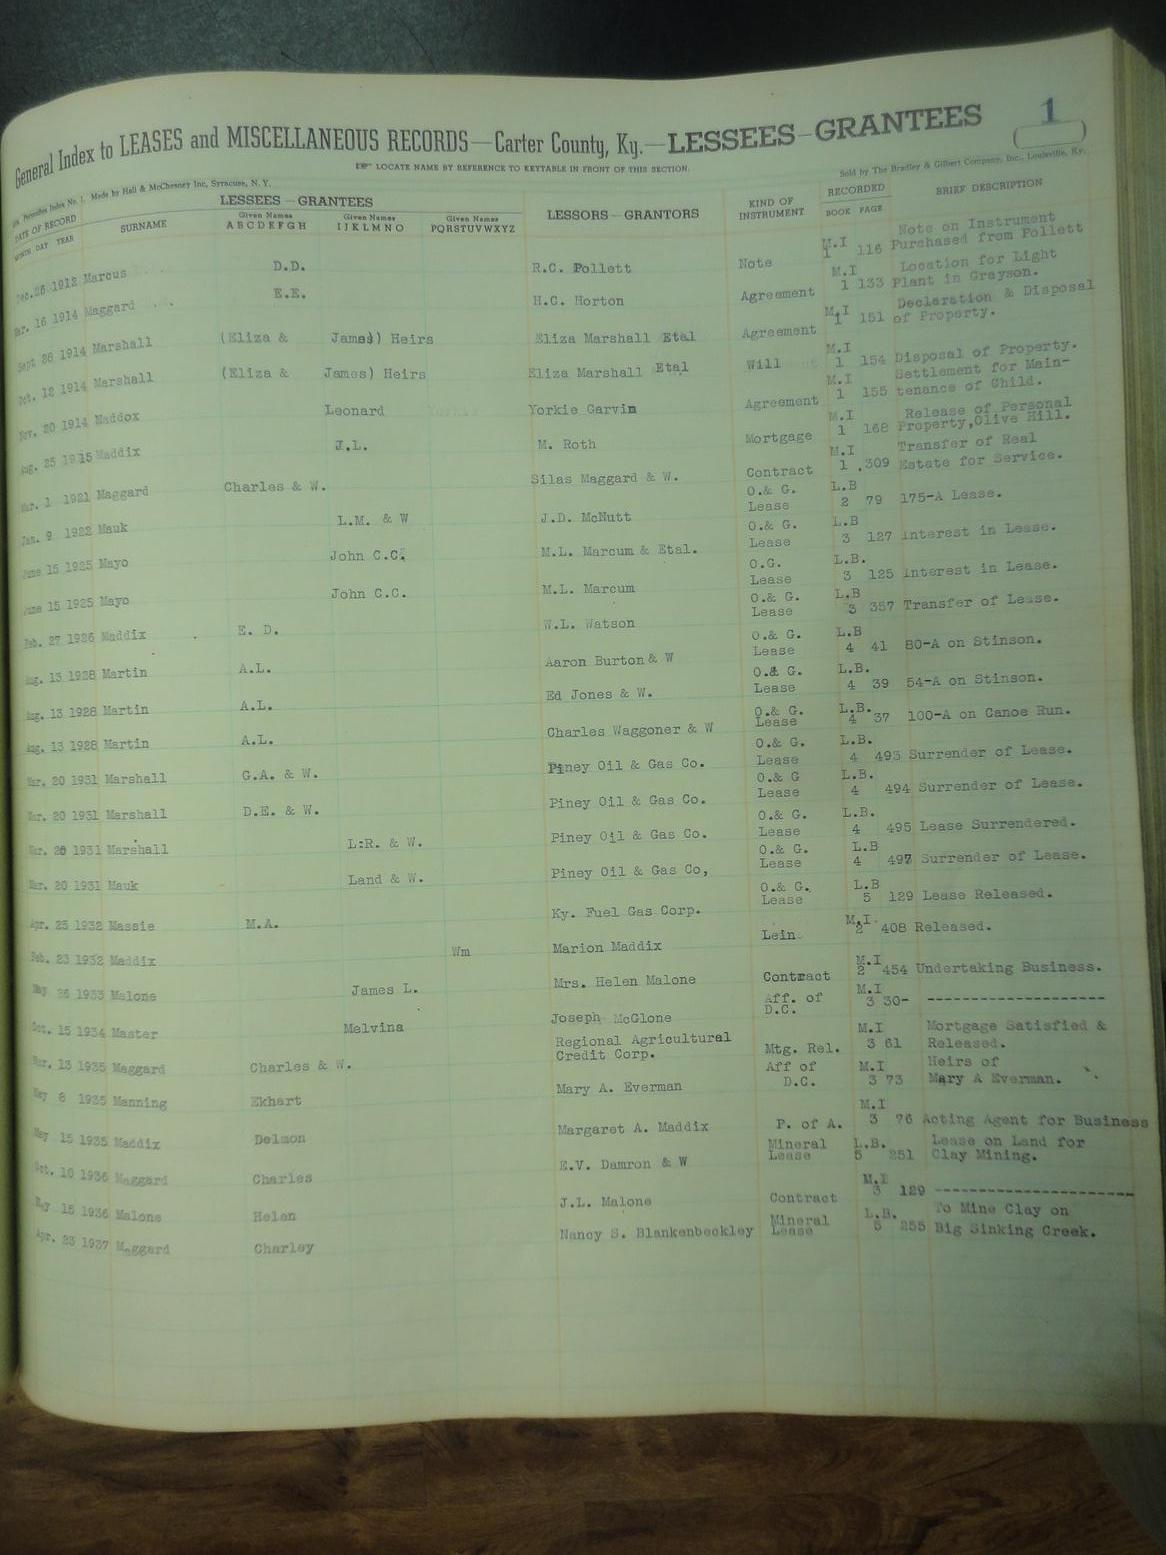 General Index to LEASES and MISCELLANEOUS RECORDS—Carter County, Ky.—LESSEES–GRANTEES 1
LOCATE NAME BY REFERENCE TO KEYTABLE IN FRONT OF THIS SECTION.
Index No. 1. Made by Hall & McChesney Inc, Syracuse, N. Y.
Sold by The Bradley & Gilbert Company, Inc., Louisville, Ky.
DATE OF RECORD LESSEES – GRANTEES LESSORS – GRANTORS KIND OF INSTRUMENT RECORDED BRIEF DESCRIPTION
MONTH DAY YEAR SURNAME Given Names ABCDEFGH Given Names IJKLMNO Given Names PQRSTUVWXYZ BOOK PAGE
Dec. 26 1912 Marcus D.D. R.C. Pollett Note M.I 1 116 Note on Instrument Purchased from Pollett
Mar. 16 1914 Maggard E.E. H.C. Horton Agreement M.I 1 133 Location for Light Plant in Grayson.
Sept. 26 1914 Marshall (Eliza & James) Heirs Eliza Marshall Etal Agreement M.I 1 151 Declaration & Disposal of Property.
Oct. 12 1914 Marshall (Eliza & James) Heirs Eliza Marshall Etal Will M.I 1 154 Disposal of Property.
Nov. 20 1914 Maddox Leonard Yorkie Garvin Agreement M.I 1 155 Settlement for Main-tenance of Child.
Aug. 25 1915 Maddix J.L. M. Roth Mortgage M.I 1 168 Release of Personal Property,Olive Hill.
Mar. 1 1921 Maggard Charles & W. Silas Maggard & W. Contract M.I 1 309 Transfer of Real Estate for Service.
Jan. 9 1922 Mauk L.M. & W J.D. McNutt O.& G. Lease L.B 2 79 175-A Lease.
June 15 1925 Mayo John C.C. M.L. Marcum & Etal. O.& G. Lease L.B 3 127 Interest in Lease.
June 15 1925 Mayo John C.C. M.L. Marcum O.G. Lease L.B. 3 125 Interest in Lease.
Feb. 27 1926 Maddix E. D. W.L. Watson O.& G. Lease L.B 3 357 Transfer of Lease.
Aug. 13 1928 Martin A.L. Aaron Burton & W O.& G. Lease L.B 4 41 80-A on Stinson.
Aug. 13 1928 Martin A.L. Ed Jones & W. O.& G. Lease L.B. 4 39 54-A on Stinson.
Aug. 13 1928 Martin A.L. Charles Waggoner & W O.& G. Lease L.B. 4 37 100-A on Canoe Run.
Mar. 20 1931 Marshall G.A. & W. Piney Oil & Gas Co. O.& G. Lease L.B. 4 493 Surrender of Lease.
Mar. 20 1931 Marshall D.E. & W. Piney Oil & Gas Co. O.& G Lease L.B. 4 494 Surrender of Lease.
Mar. 20 1931 Marshall L:R. & W. Piney Oil & Gas Co. O.& G. Lease L.B. 4 495 Lease Surrendered.
Mar. 20 1931 Mauk Land & W. Piney Oil & Gas Co, O.& G. Lease L.B 4 497 Surrender of Lease.
Apr. 25 1932 Massie M.A. Ky. Fuel Gas Corp. O.& G. Lease L.B 5 129 Lease Released.
Feb. 23 1932 Maddix Wm Marion Maddix Lein M.I. 2 408 Released.
May 26 1933 Malone James L. Mrs. Helen Malone Contract M.I 2 454 Undertaking Business.
Oct. 15 1934 Master Melvina Joseph McGlone Aff. of D.C. M.I 3 30- --------------------
Mar. 13 1935 Maggard Charles & W. Regional Agricultural Credit Corp. Mtg. Rel. M.I 3 61 Mortgage Satisfied & Released.
May 8 1935 Manning Ekhart Mary A. Everman Aff of D.C. M.I 3 73 Heirs of Mary A Everman.
May 15 1935 Maddix Delmon Margaret A. Maddix P. of A. M.I 3 76 Acting Agent for Business
Oct. 10 1936 Maggard Charles E.V. Damron & W Mineral Lease L.B. 5 251 Lease on Land for Clay Mining.
May 15 1936 Malone Helen J.L. Malone Contract M.I 3 129 ----------------------
Apr. 23 1937 Maggard Charley Nancy S. Blankenbeckley Mineral Lease L.B. 5 255 To Mine Clay on Big Sinking Creek.